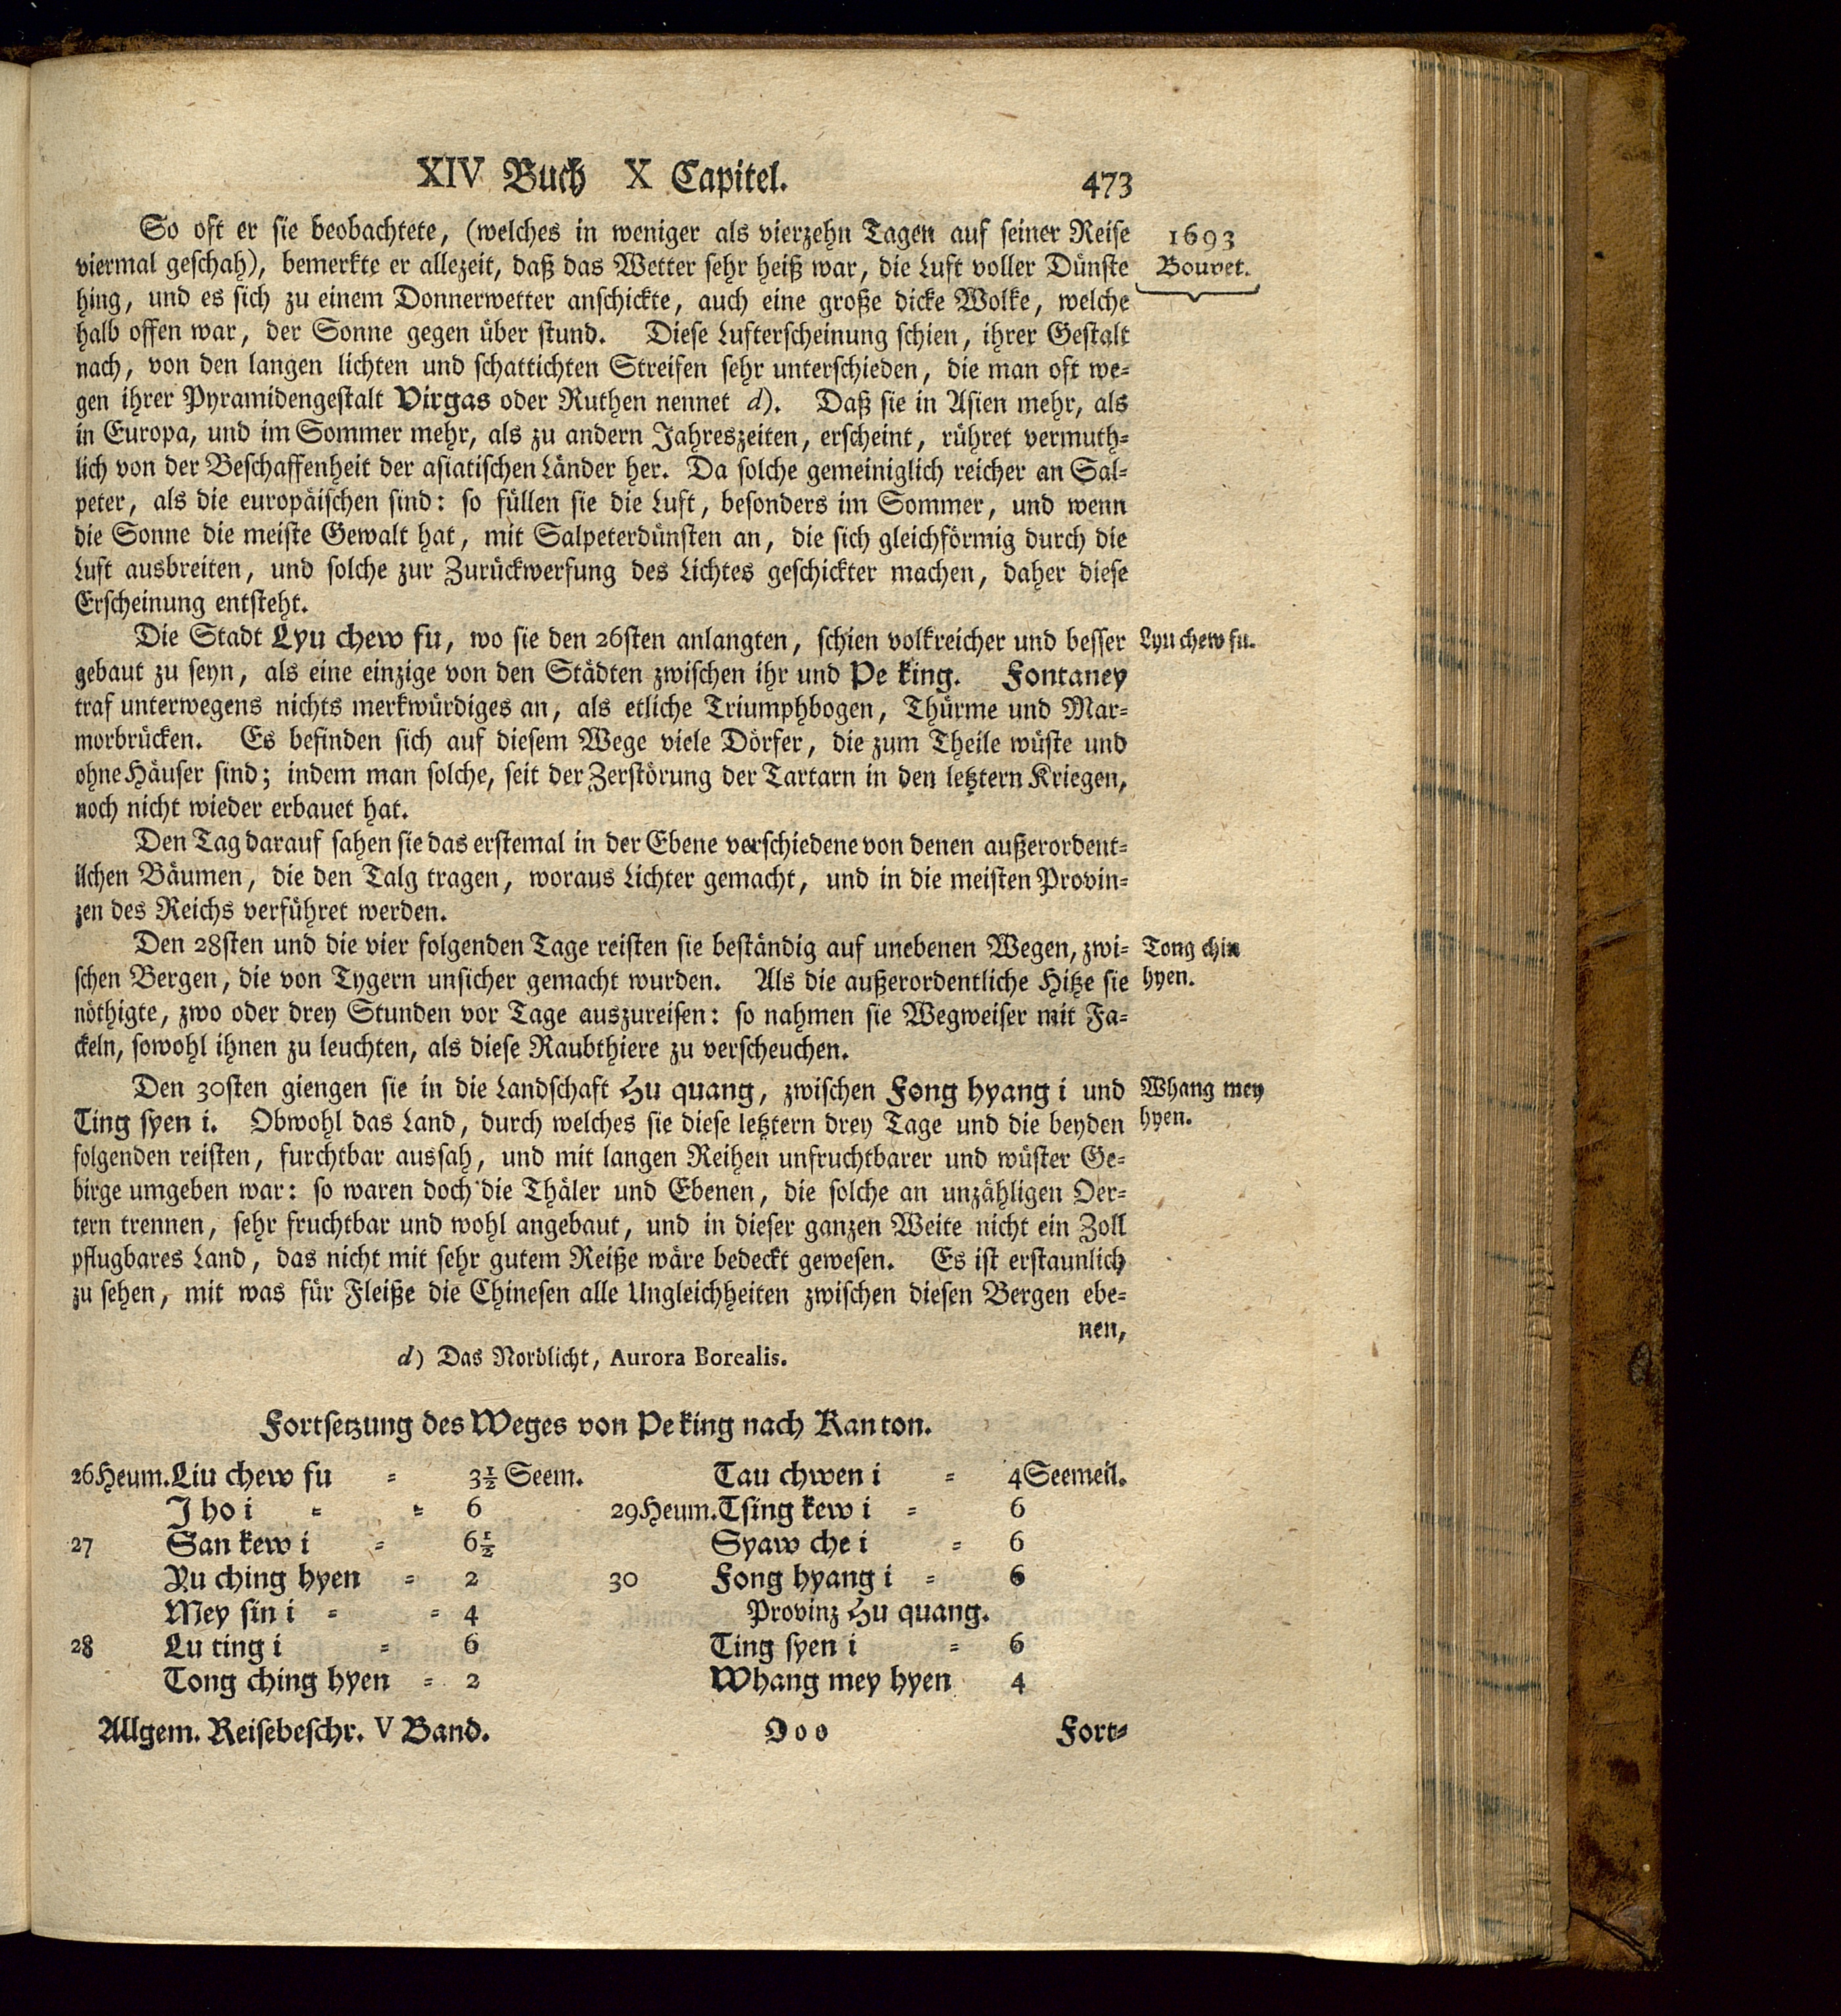 XIV Buch X Capitel. 473
So oft er sie beobachtete, (welches in weniger als vierzehn Tagen auf seiner Reise
viermal geschah), bemerkte er allezeit, daß das Wetter sehr heiß war, die Luft voller Dünste
hing, und es sich zu einem Donnerwetter anschickte, auch eine große dicke Wolke, welche
halb offen war, der Sonne gegen über stund. Diese Lufterscheinung schien, ihrer Gestalt
nach, von den langen lichten und schattichten Streifen sehr unterschieden, die man oft we-
gen ihrer Pyramidengestalt Virgas oder Ruthen nennet d). Daß sie in Asien mehr, als
in Europa, und im Sommer mehr, als zu andern Jahreszeiten, erscheint, rühret vermuth-
lich von der Beschaffenheit der asiatischen Länder her. Da solche gemeiniglich reicher an Sal-
peter, als die europäischen sind: so füllen sie die Luft, besonders im Sommer, und wenn
die Sonne die meiste Gewalt hat, mit Salpeterdünsten an, die sich gleichförmig durch die
Luft ausbreiten, und solche zur Zurückwerfung des Lichtes geschickter machen, daher diese
Erscheinung entsteht.
1693
Bouvet.
Die Stadt Lyu chew fu, wo sie den 26sten anlangten, schien volkreicher und besser
gebaut zu seyn, als eine einzige von den Städten zwischen ihr und Pe king. Fontaney
traf unterwegens nichts merkwürdiges an, als etliche Triumphbogen, Thürme und Mar-
morbrücken. Es befinden sich auf diesem Wege viele Dörfer, die zum Theile wüste und
ohne Häuser sind; indem man solche, seit der Zerstörung der Tartarn in den letztern Kriegen,
noch nicht wieder erbauet hat.
Lyu chew fu.
Den Tag darauf sahen sie das erstemal in der Ebene verschiedene von denen außerordent-
lichen Bäumen, die den Talg tragen, woraus Lichter gemacht, und in die meisten Provin-
zen des Reichs verführet werden.
Den 28sten und die vier folgenden Tage reisten sie beständig auf unebenen Wegen, zwi-
schen Bergen, die von Tygern unsicher gemacht wurden. Als die außerordentliche Hitze sie
nöthigte, zwo oder drey Stunden vor Tage auszureisen: so nahmen sie Wegweiser mit Fa-
ckeln, sowohl ihnen zu leuchten, als diese Raubthiere zu verscheuchen.
Tong chin
hyen.
Den 30sten giengen sie in die Landschaft Hu quang, zwischen Fong hyang i und
Ting syen i. Obwohl das Land, durch welches sie diese letztern drey Tage und die beyden
folgenden reisten, furchtbar aussah, und mit langen Reihen unfruchtbarer und wüster Ge-
birge umgeben war: so waren doch die Thäler und Ebenen, die solche an unzähligen Oer-
tern trennen, sehr fruchtbar und wohl angebaut, und in dieser ganzen Weite nicht ein Zoll
pflugbares Land, das nicht mit sehr gutem Reiße wäre bedeckt gewesen. Es ist erstaunlich
zu sehen, mit was für Fleiße die Chinesen alle Ungleichheiten zwischen diesen Bergen ebe-
nen,
Whang mey
hyen.
d) Das Nordlicht, Aurora Borealis.
Fortsetzung des Weges von Pe king nach Kanton.
26 Heum. Liu chew fu = 3½ Seem.
J ho i = = 6
27 San kew i = 6½
Yu ching hyen = 2
Mey sin i = = 4
28 Lu ting i = 6
Tong ching hyen = 2
Tau chwen i = 4 Seemeil.
29 Heum. Tsing kew i = 6
Syaw che i = 6
30 Fong hyang i = 6
Provinz Hu quang.
Ting syen i = 6
Whang mey hyen 4
Allgem. Reisebeschr. V Band. Ooo Fort-